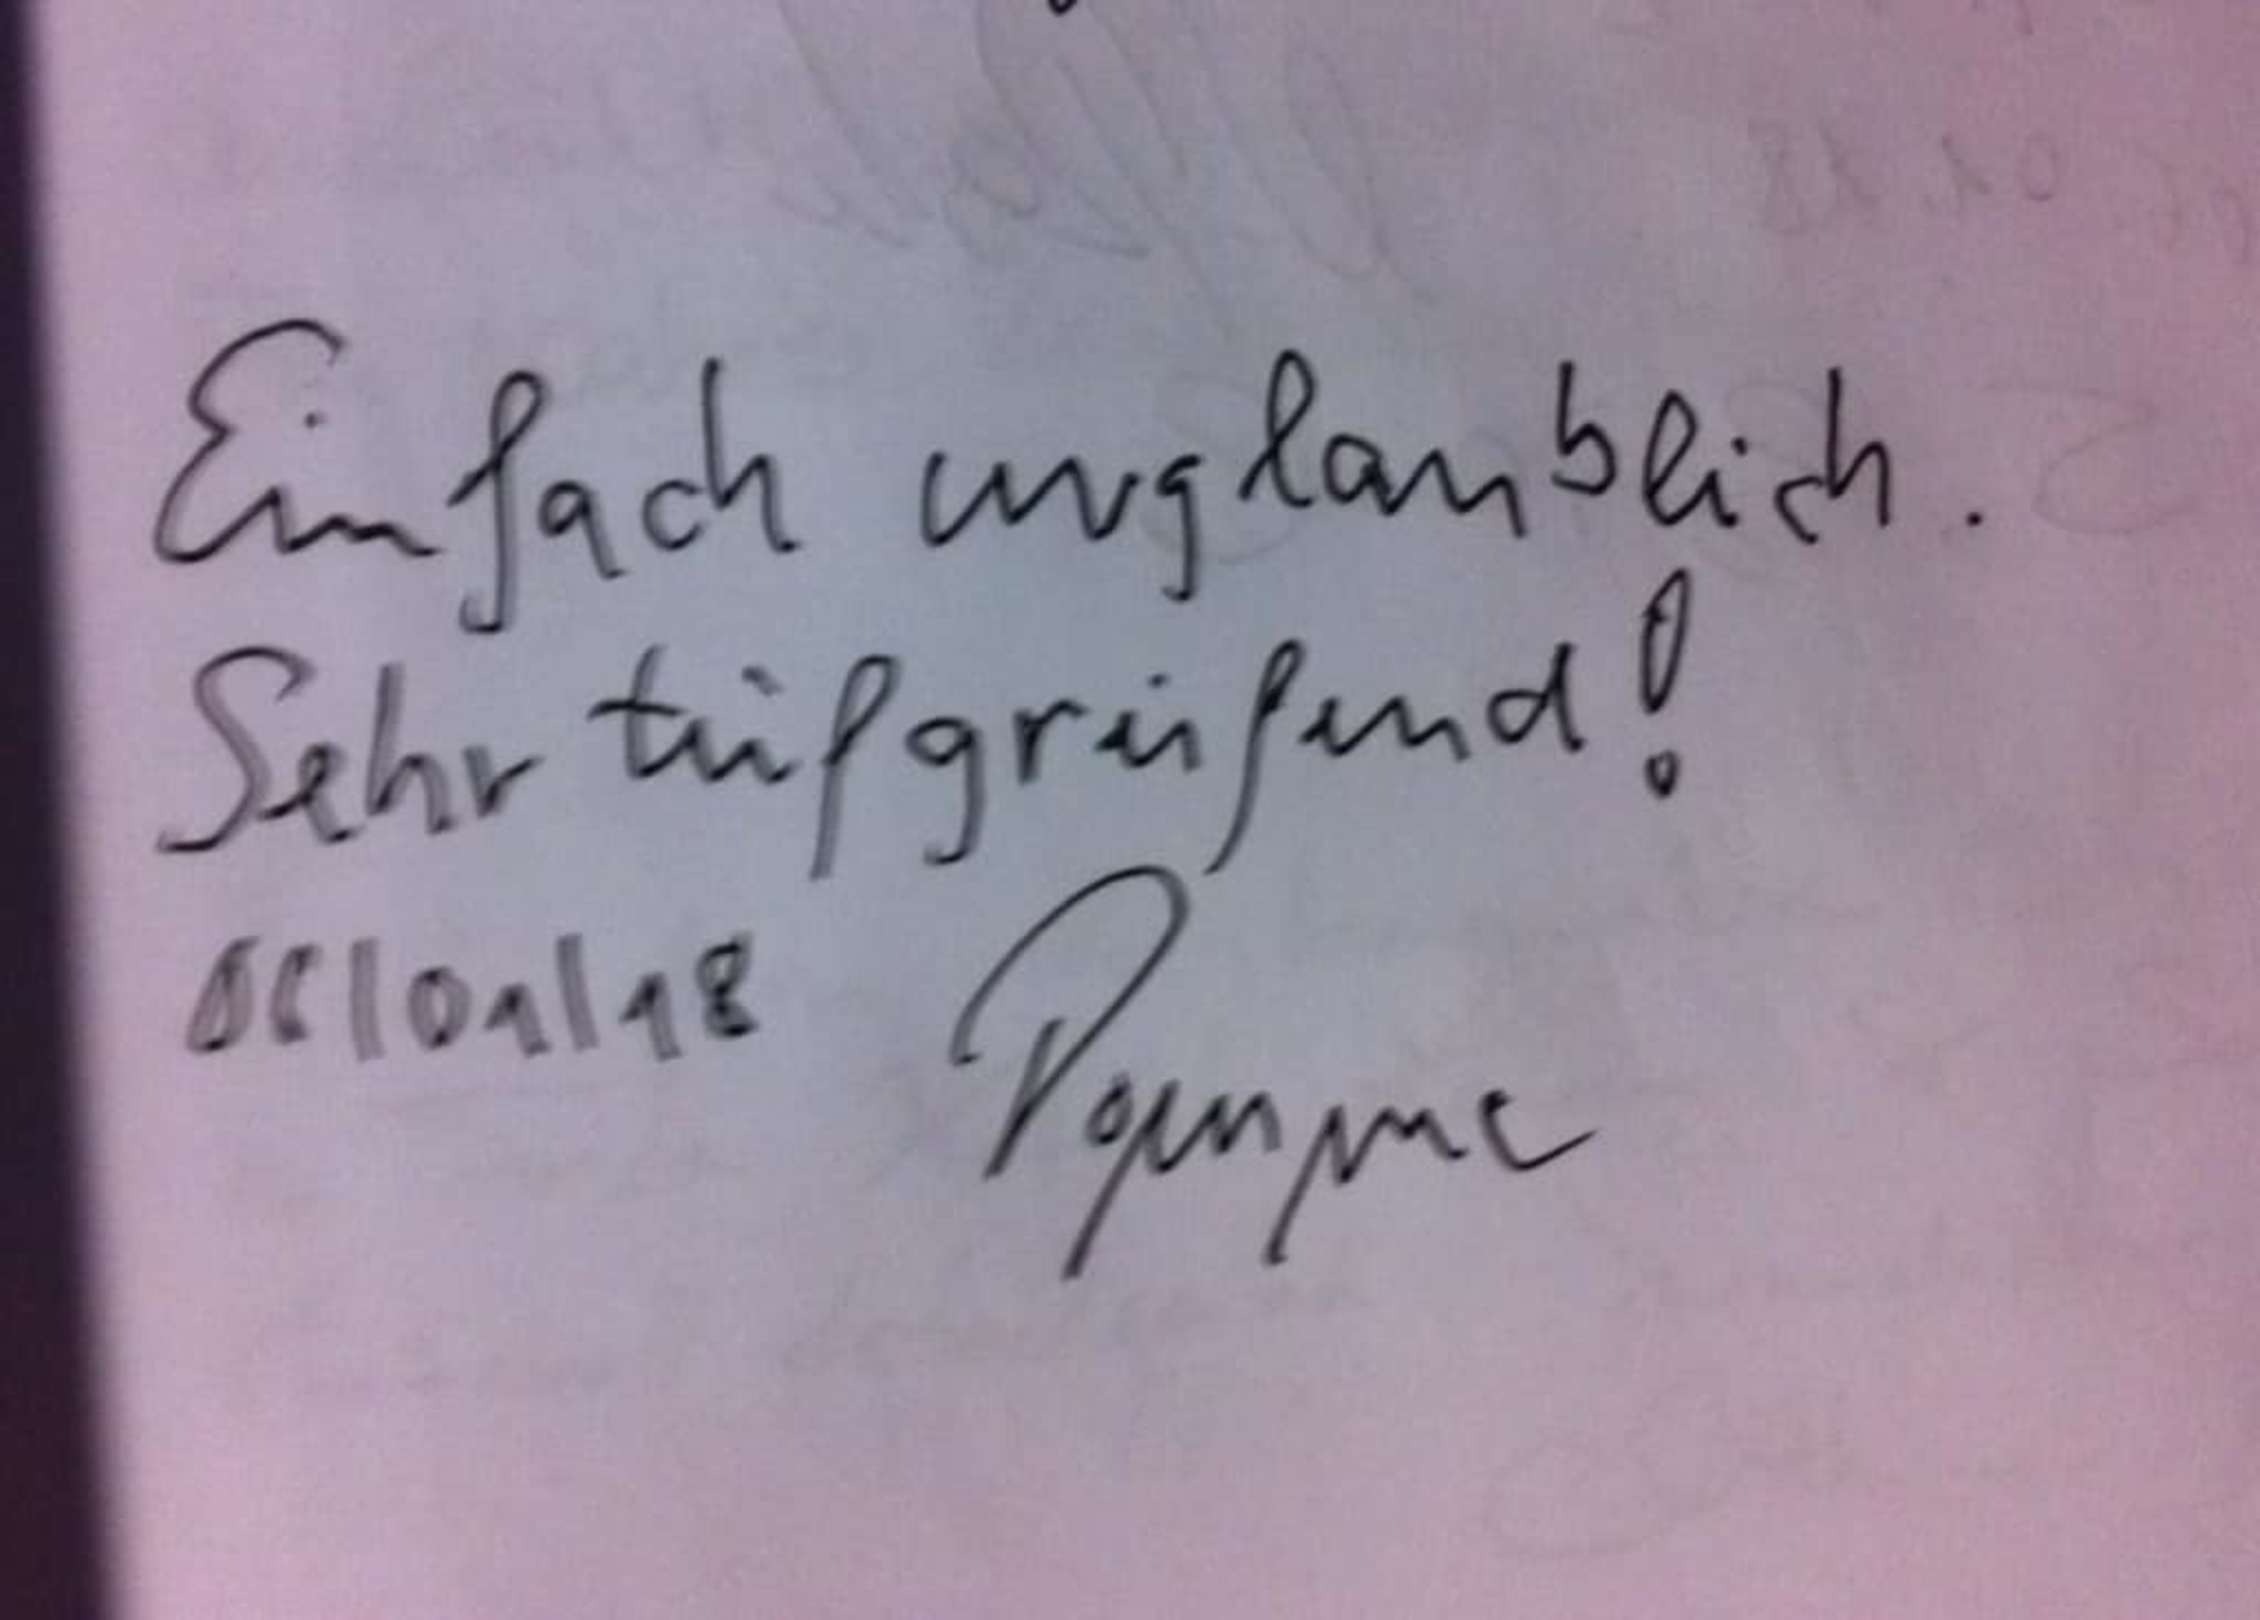 Einfach unglaublich.
Sehr tiefgreifend!
06/01/18